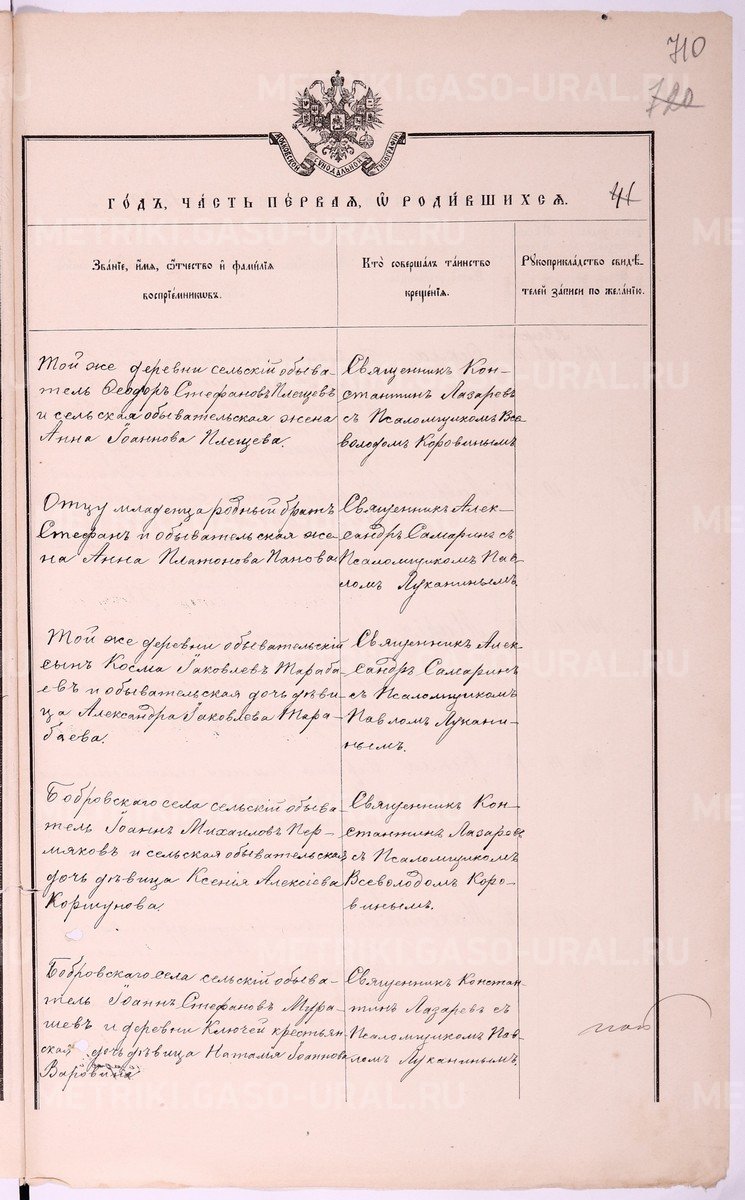 710
720
МОСКОВСКОЙ СУНОДАЛЬНОЙ ТИПОГРАФІИ
ГО́ДЪ, ЧА́СТЬ ПЕ́РВАѦ, Ѡ҆ РОДИ́ВШИХСѦ.
41
Зва́нїе, и҆́мѧ, ѻ҆́тчество и҆ фами́лїѧ
воспрїе́мникѡвъ.
Кто̀ соверша́лъ та́инство
креще́нїѧ.
Рꙋкоприкла́дство свидѣ́-
телей за́писи по жела́нїю.
Той же деревни сельскій обыва-
тель Ѳеодоръ Стефановъ Плещевъ
и сельская обывательская жена
Анна Іоаннова Плещева.
Священникъ Кон-
стантинъ Лазаревъ
съ Псаломщикомъ Все-
володомъ Коровинымъ
Отцу младенца родный братъ
Стефанъ и обывательская же-
на Анна Платонова Панова
Священникъ Алек-
сандръ Самаринъ съ
Псаломщикомъ Пав-
ломъ Луканинымъ.
Той же деревни обывательскій
сынъ Косма Іаковлевъ Тараба-
евъ и обывательская дочь дѣви-
ца Александра Іаковлева Тара-
баева.
Священникъ Алек-
сандръ Самаринъ
съ Псаломщикомъ
Павломъ Лукани-
нымъ.
Бобровскаго села сельскій обыва-
тель Іоаннъ Михаиловъ Пер-
мяковъ и сельская обывательская
дочь дѣвица Ксенія Алексіева
Коршунова.
Священникъ Кон-
стантинъ Лазаревъ
съ Псаломщикомъ
Всеволодомъ Коро-
винымъ.
Бобровскаго села сельскій обыва-
тель Іоаннъ Стефановъ Мура-
шевъ и деревни Ключей крестьян-
ская дочь дѣвица Наталія Іоаннова
Варовина
Священникъ Констан-
тинъ Лазаревъ съ
Псаломщикомъ Пав-
ломъ Луканинымъ.
METRIKI.GASO-URAL.RU